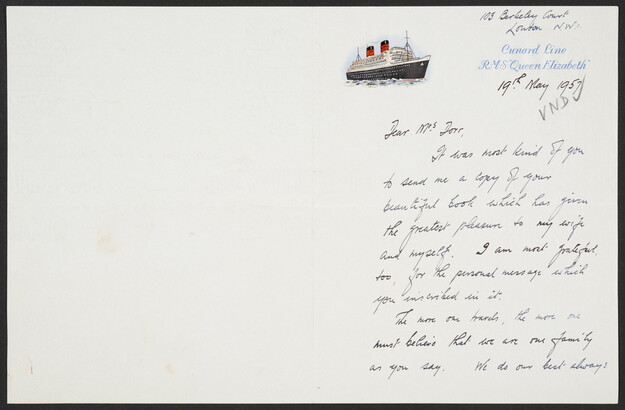 103 Berkeley Court
London N.W.1
Cunard Line
R.M.S "Queen Elizabeth"
19th May 1957
VNDJ
Dear Mrs Dorr,
It was most kind of you
to send me a copy of your
beautiful book which has given
the greatest pleasure to my wife
and myself. I am most grateful,
too, for the personal message which
you inscribed in it.
The more one travels, the more one
must believe that we are one family
as you say. We do our best always